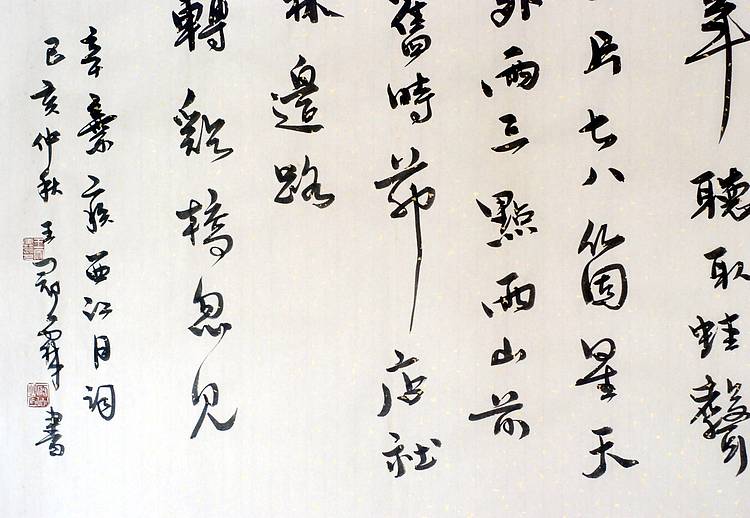 年聽取蛙聲
片七八箇星天
外兩三點雨山前
舊時茆店社
林邊路
轉谿橋忽見
辛棄疾西江月詞
己亥仲秋王書